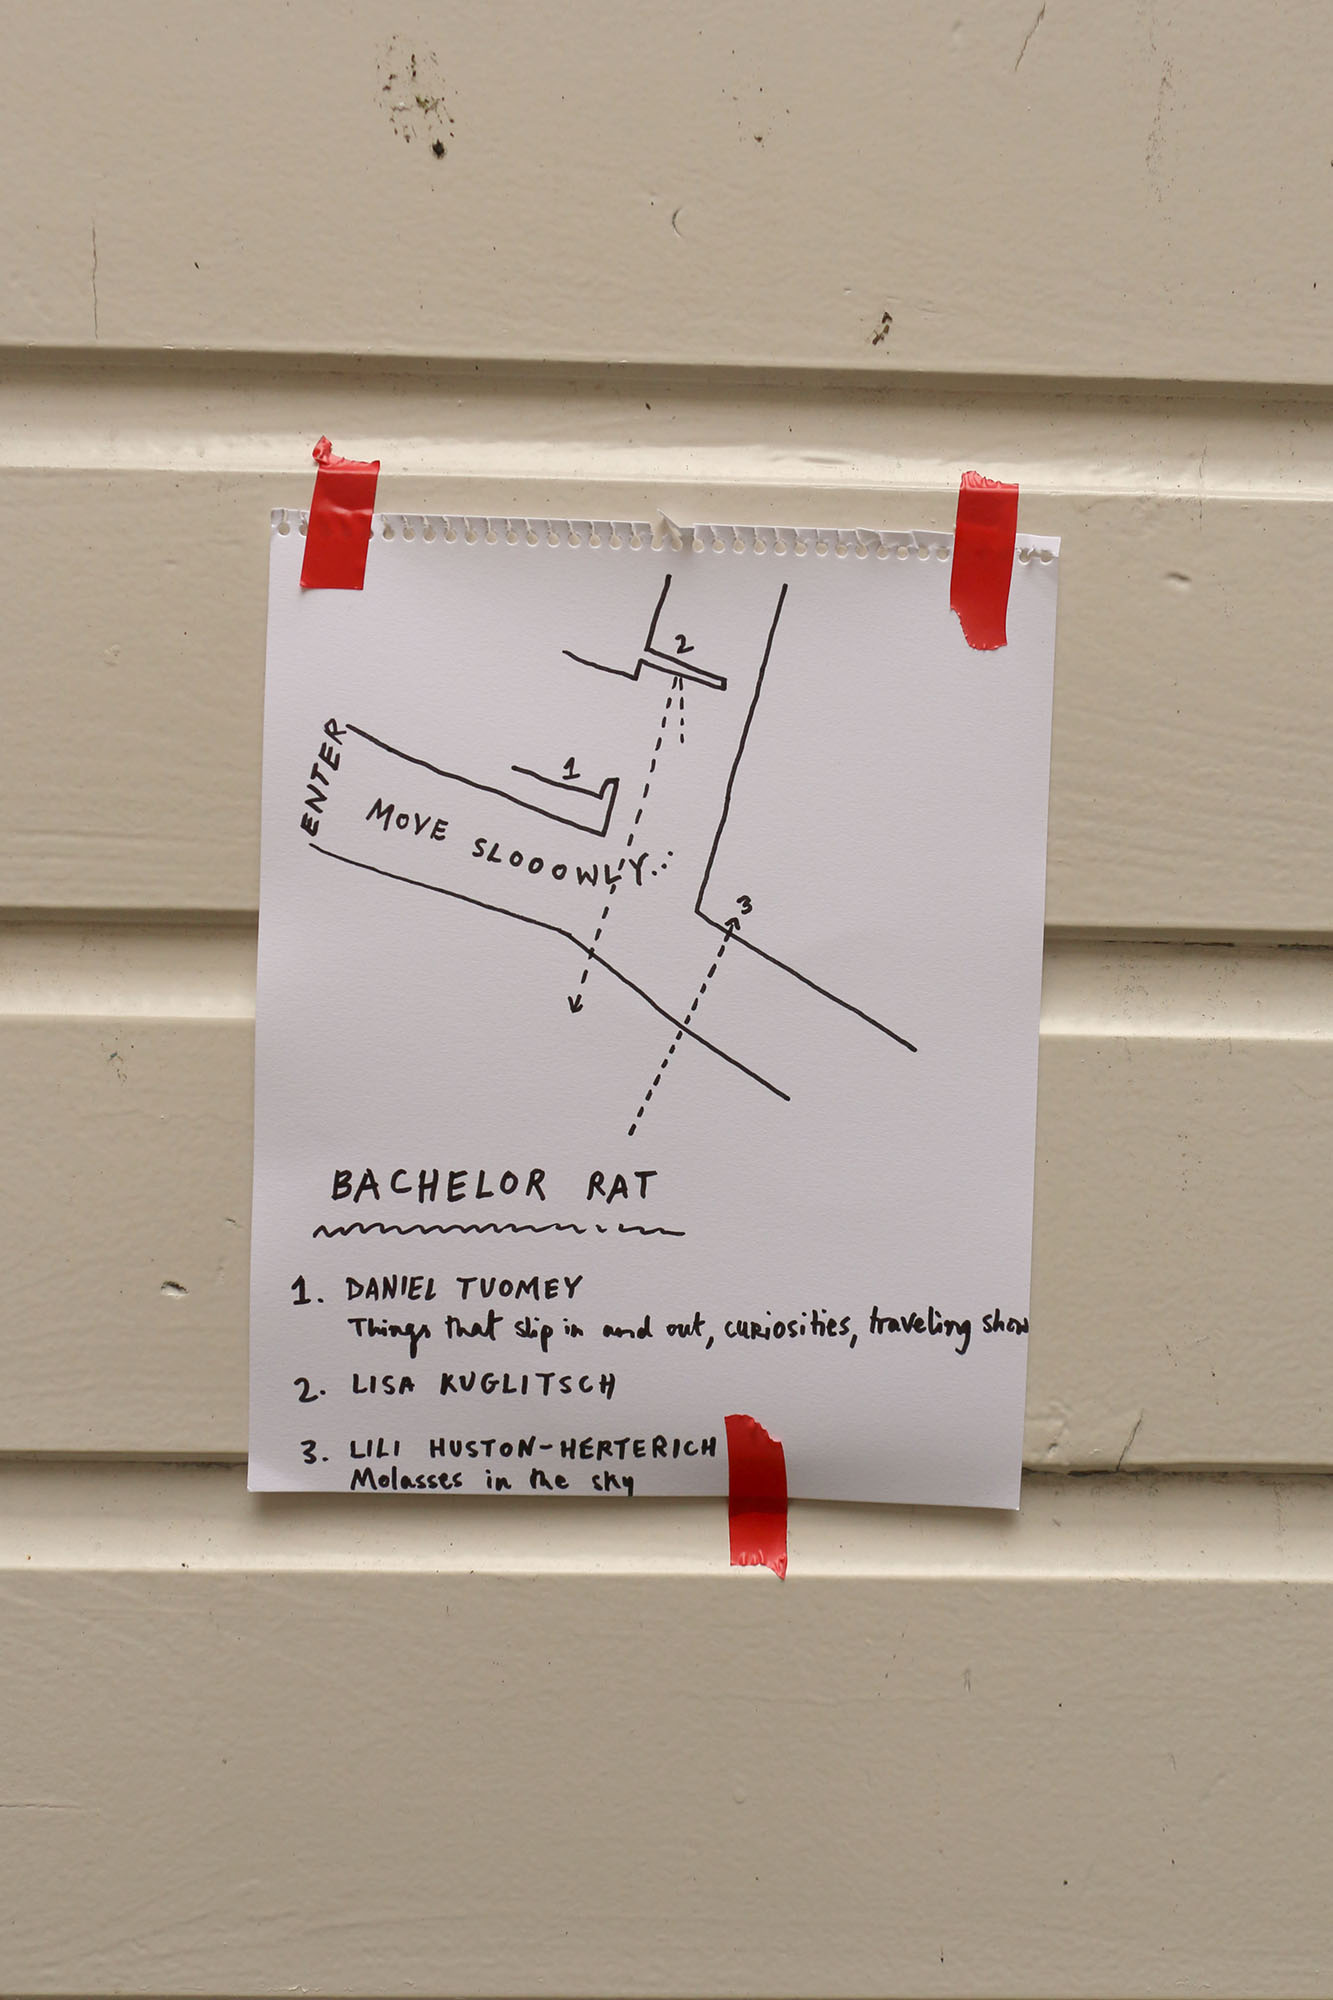 2
ENTER
1
MOVE SLOOOWLY...
3
BACHELOR RAT
1. DANIEL TUOMEY
Things that slip in and out, curiosities, traveling show
2. LISA KUGLITSCH
3. LILI HUSTON-HERTERICH
Molasses in the sky